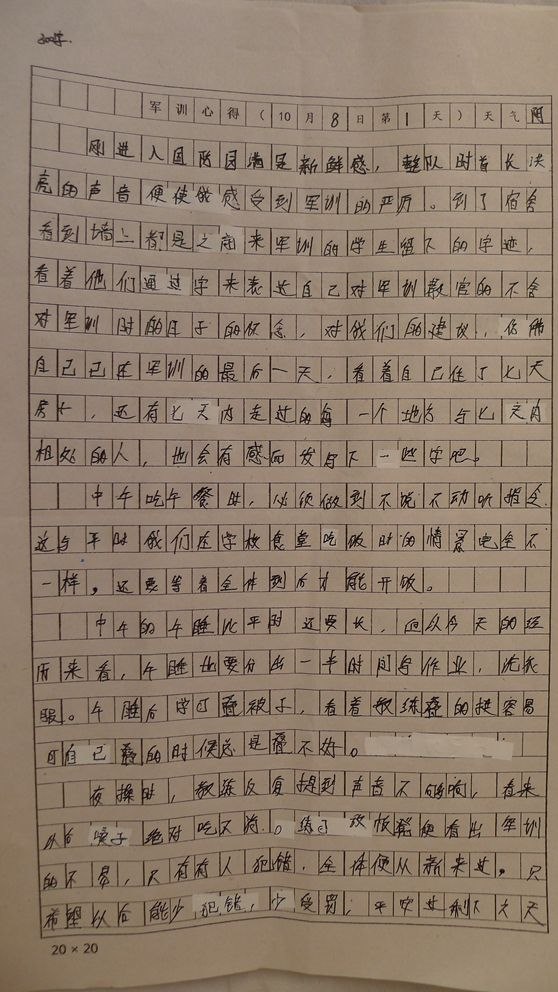 军训心得(10月8日第1天)天气阴
刚进入国防园满是新鲜感,整队时首长洪
亮的声音便使我感受到军训的严厉。到了宿舍
看到墙上都是之前来军训的学生留下的字迹,
看着他们通过字来表达自己对军训教官的不舍
对军训时的日子的怀念,对我们的建议,仿佛
自己已在军训的最后一天,看着自己住了七天
房 ,还有七天内走过的每一个地方与七天内
相处的人,也会有感而发写下一些字吧。
中午吃午餐时,必须做到不说不动听指令
这与平时我们在学校食堂吃饭时的情景完全不
一样,还要等着全体到后才能开饭。
中午的午睡比平时还要长,但从今天的经
历来看,午睡也要分出一半时间写作业,洗衣
服。午睡后学叠被子,看着教练叠的挺容易
可自己叠的时候总是叠不好。
夜操时,教练反复提到声音不够响,看来
以后嗓子绝对吃不消。练 便看出军训
的不易,只有有人犯错,全体便从新来过。只
希望以后能少犯错,少受罚,平安 利 六天
20×20